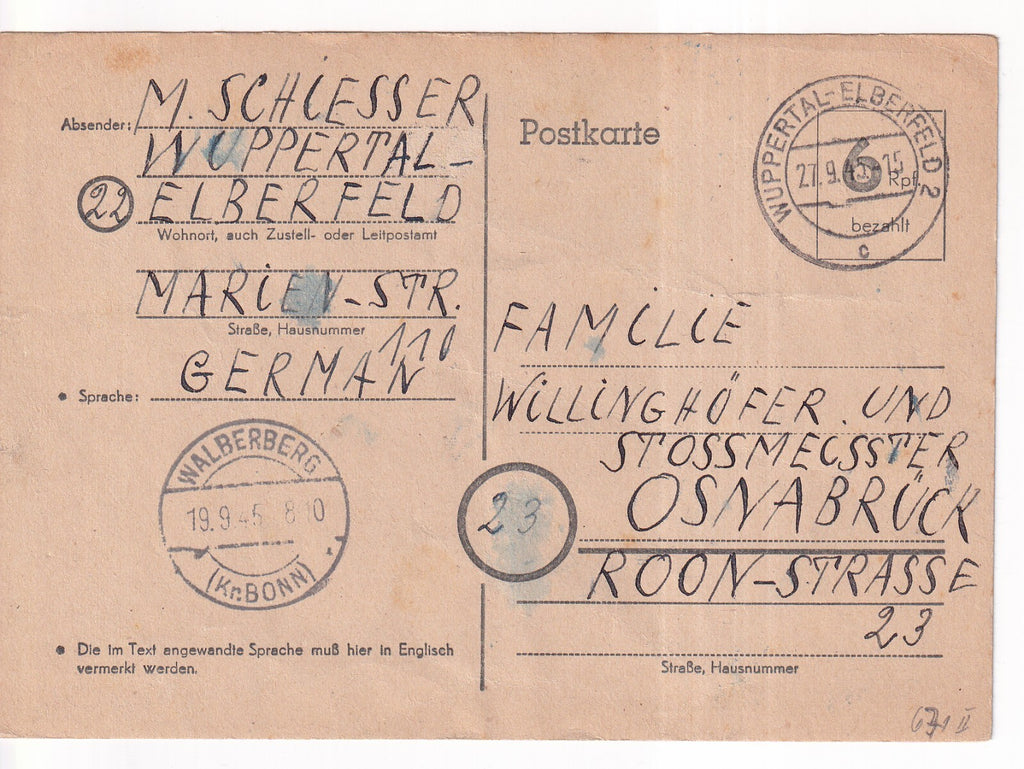 Absender: M. SCHIESSER
WUPPERTAL-
22 ELBERFELD
Wohnort, auch Zustell- oder Leitpostamt
MARIEN-STR.
Straße, Hausnummer
110
• Sprache: GERMAN
WALBERBERG
19.9.45 8 10
(Kr.BONN)
• Die im Text angewandte Sprache muß hier in Englisch
vermerkt werden.
Postkarte
WUPPERTAL-ELBERFELD 2
27.9.45-15
c
6
Rpf
bezahlt
FAMILIE
WILLINGHÖFER. UND
STOSSMEISSTER
23 OSNABRÜCK
ROON-STRASSE
23
Straße, Hausnummer